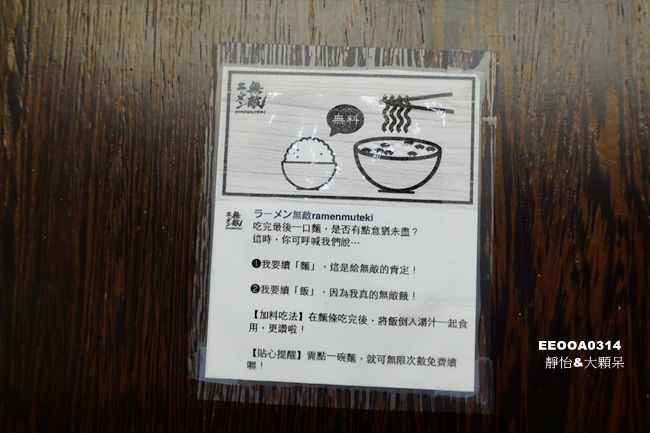 ラーメン 無敵!
RAMENMUTEKI
無料
ラーメン 無敵!
ラーメン無敵ramenmuteki
吃完最後一口麵，是否有點意猶未盡？
這時，你可呼喊我們說…
❶我要續「麵」，這是給無敵的肯定！
❷我要續「飯」，因為我真的無敵餓！
【加料吃法】在麵條吃完後，將飯倒入湯汁一起食
用，更讚啦！
【貼心提醒】需點一碗麵，就可無限次數免費續
喔！
EEOOA0314
靜怡&大顆呆